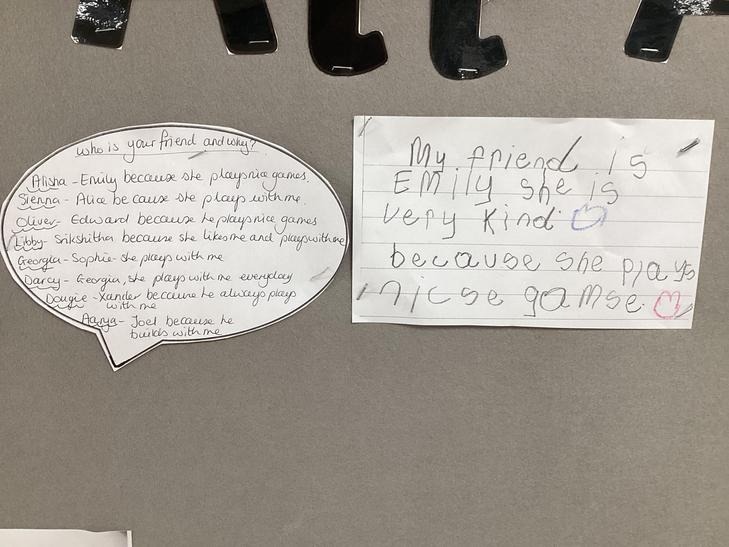 who is your friend and why?
Alisha - Emily because she plays nice games.
Sienna - Alice because she plays with me.
Oliver - Edward because he plays nice games
Libby - Srikshitha because she likes me and plays with me
Georgia - Sophie - she plays with me
Darcy - Georgia, she plays with me everyday
Dougie - Xander because he always plays
with me
Aarya - Joel because he
builds with me
My friend is
EMily she is
very kind.
because she plays
nicse gamse.